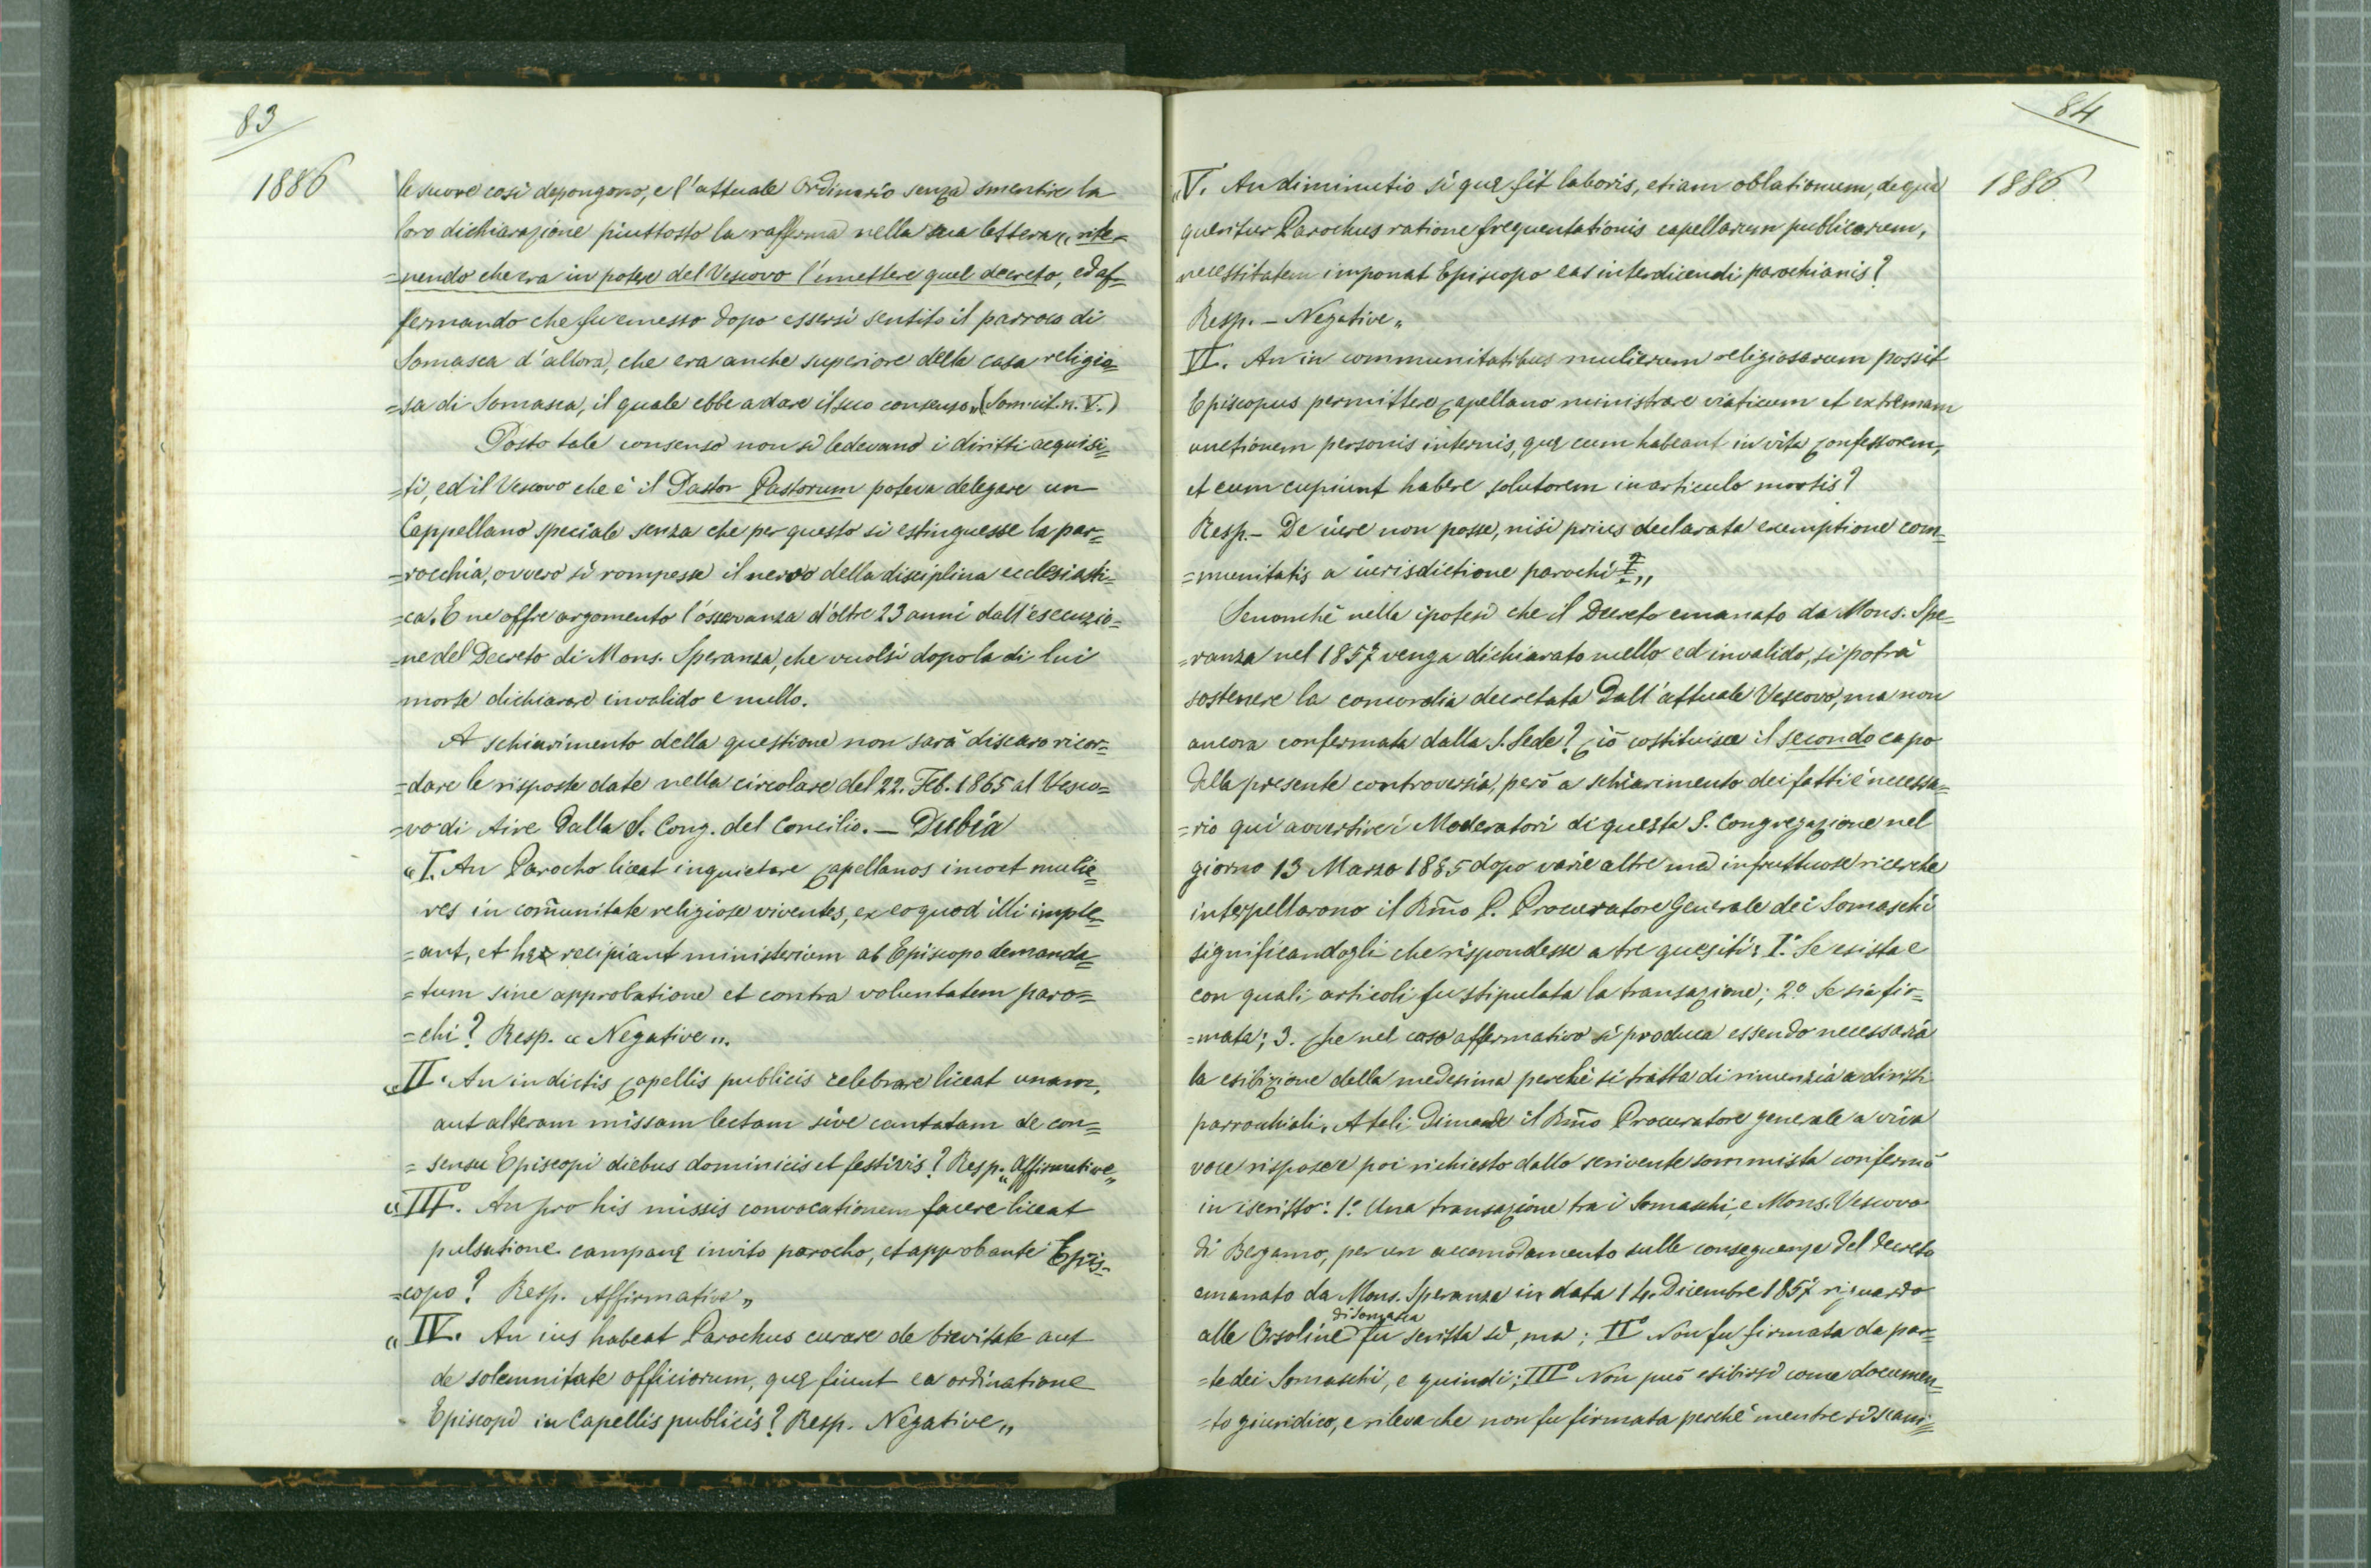 83
1886
le suore così depongono, e l'attuale Ordinario senza smentire la
loro dichiarazione piuttosto la rafferma nella sua lettera „ rite=
=nendo che era in potere del Vescovo l'emettere quel decreto, ed af=
fermando che fu emesso dopo essersi sentito il parroco di
Somasca d'allora, che era anche superiore della casa religio=
=sa di Somasca, il quale ebbe a dare il suo consenso „ (Som. cit. n. V.)
Posto tale consenso non si ledevano i diritti acquisi=
=ti, ed il Vescovo che è il Pastor Pastorum poteva delegare un
Cappellano speciale senza che per questo si estinguesse la par=
=rocchia, ovvero si rompesse il nervo della disciplina ecclesiasti=
=ca. E ne offre argomento l'osservanza d'oltre 23 anni dall'esecuzio=
=ne del Decreto di Mons. Speranza, che vuolsi dopo la di lui
morte dichiarare invalido e nullo.
A schiarimento della questione non sarà discaro ricor=
=dare le risposte date nella circolare del 22. Feb. 1865 al Vesco=
=vo di Aire dalla S. Cong. del Concilio. — Dubia
„ I. An Parocho liceat inquietare capellanos imo et mulie=
res in com̃unitate religiose viventes, ex eo quod illi imple=
=ant, et hęc recipiant ministerium ab Episcopo demanda=
=tum sine approbatione et contra voluntatem paro=
=chi? Resp. „ Negative „.
„ II. An in dictis capellis publicis celebrare liceat unam,
aut alteram missam lectam sive cantatam de con=
=sensu Episcopi diebus dominicis et festivis? Resp. „ Affirmative „
„ III°. An pro his missis convocationem facere liceat
pulsatione campanę invito parocho, et approbante Epis=
=copo? Resp. Affirmative „
„ IV. An ius habeat Parochus curare de brevitate aut
de solemnitate officiorum, quę fiunt ex ordinatione
Episcopi in Capellis publicis? Resp. Negative „
84
1886
„ V. An diminutio si quę fit laboris, etiam oblationum, de qua
queritur Parochus ratione frequentationis capellarum publicarum,
necessitatem imponat Episcopo eas interdicendi parochianis?
Resp. — Negative „
VI. An in communitatibus mulierum religiosarum possit
Episcopus permittere capellano ministrare viaticum et extremam
unctionem personis internis, quę eum habeant in vita confessorem,
et eum cupiunt habere solutorem in articulo mortis?
Resp. — De iure non posse, nisi prius declarata exemptione com=
=munitatis a iurisdictione parochi „
Senonchè nella ipotesi che il Decreto emanato da Mons. Spe=
=ranza nel 1857 venga dichiarato nullo ed invalido, si potrà
sostenere la concordia decretata dall'attuale Vescovo, ma non
ancora confermata dalla S. Sede? Ciò costituisce il secondo capo
della presente controversia, però a schiarimento dei fatti è necessa=
=rio qui avvertire i Moderatori di questa S. Congregazione nel
giorno 13 Marzo 1885 dopo varie altre ma infruttuose ricerche
interpellarono il Rm̃o P. Procuratore Generale dei Somaschi
significandogli che rispondesse a tre quesiti: I.° Se esista e
con quali articoli fu stipulata la transazione; 2.° Se sia fir=
=mata; 3. Che nel caso affermativo si produca essendo necessaria
la esibizione della medesima perchè si tratta di rinunzia a diritti
parrochiali. A tali dimande il Rm̃o Procuratore generale a viva
voce rispose e poi richiesto dallo scrivente sommista confermò
in iscritto: 1.° Una transazione tra i Somaschi, e Mons. Vescovo
di Bergamo, per un accomodamento sulle conseguenze del decreto
emanato da Mons. Speranza in data 14. Dicembre 1857 riguardo
di Somasca
alle Orsoline fu scritta sì, ma; II° Non fu firmata da par=
=te dei Somaschi, e quindi; III° Non può esibirsi come documen=
=to giuridico, e rileva che non fu firmata perchè mentre si scam=